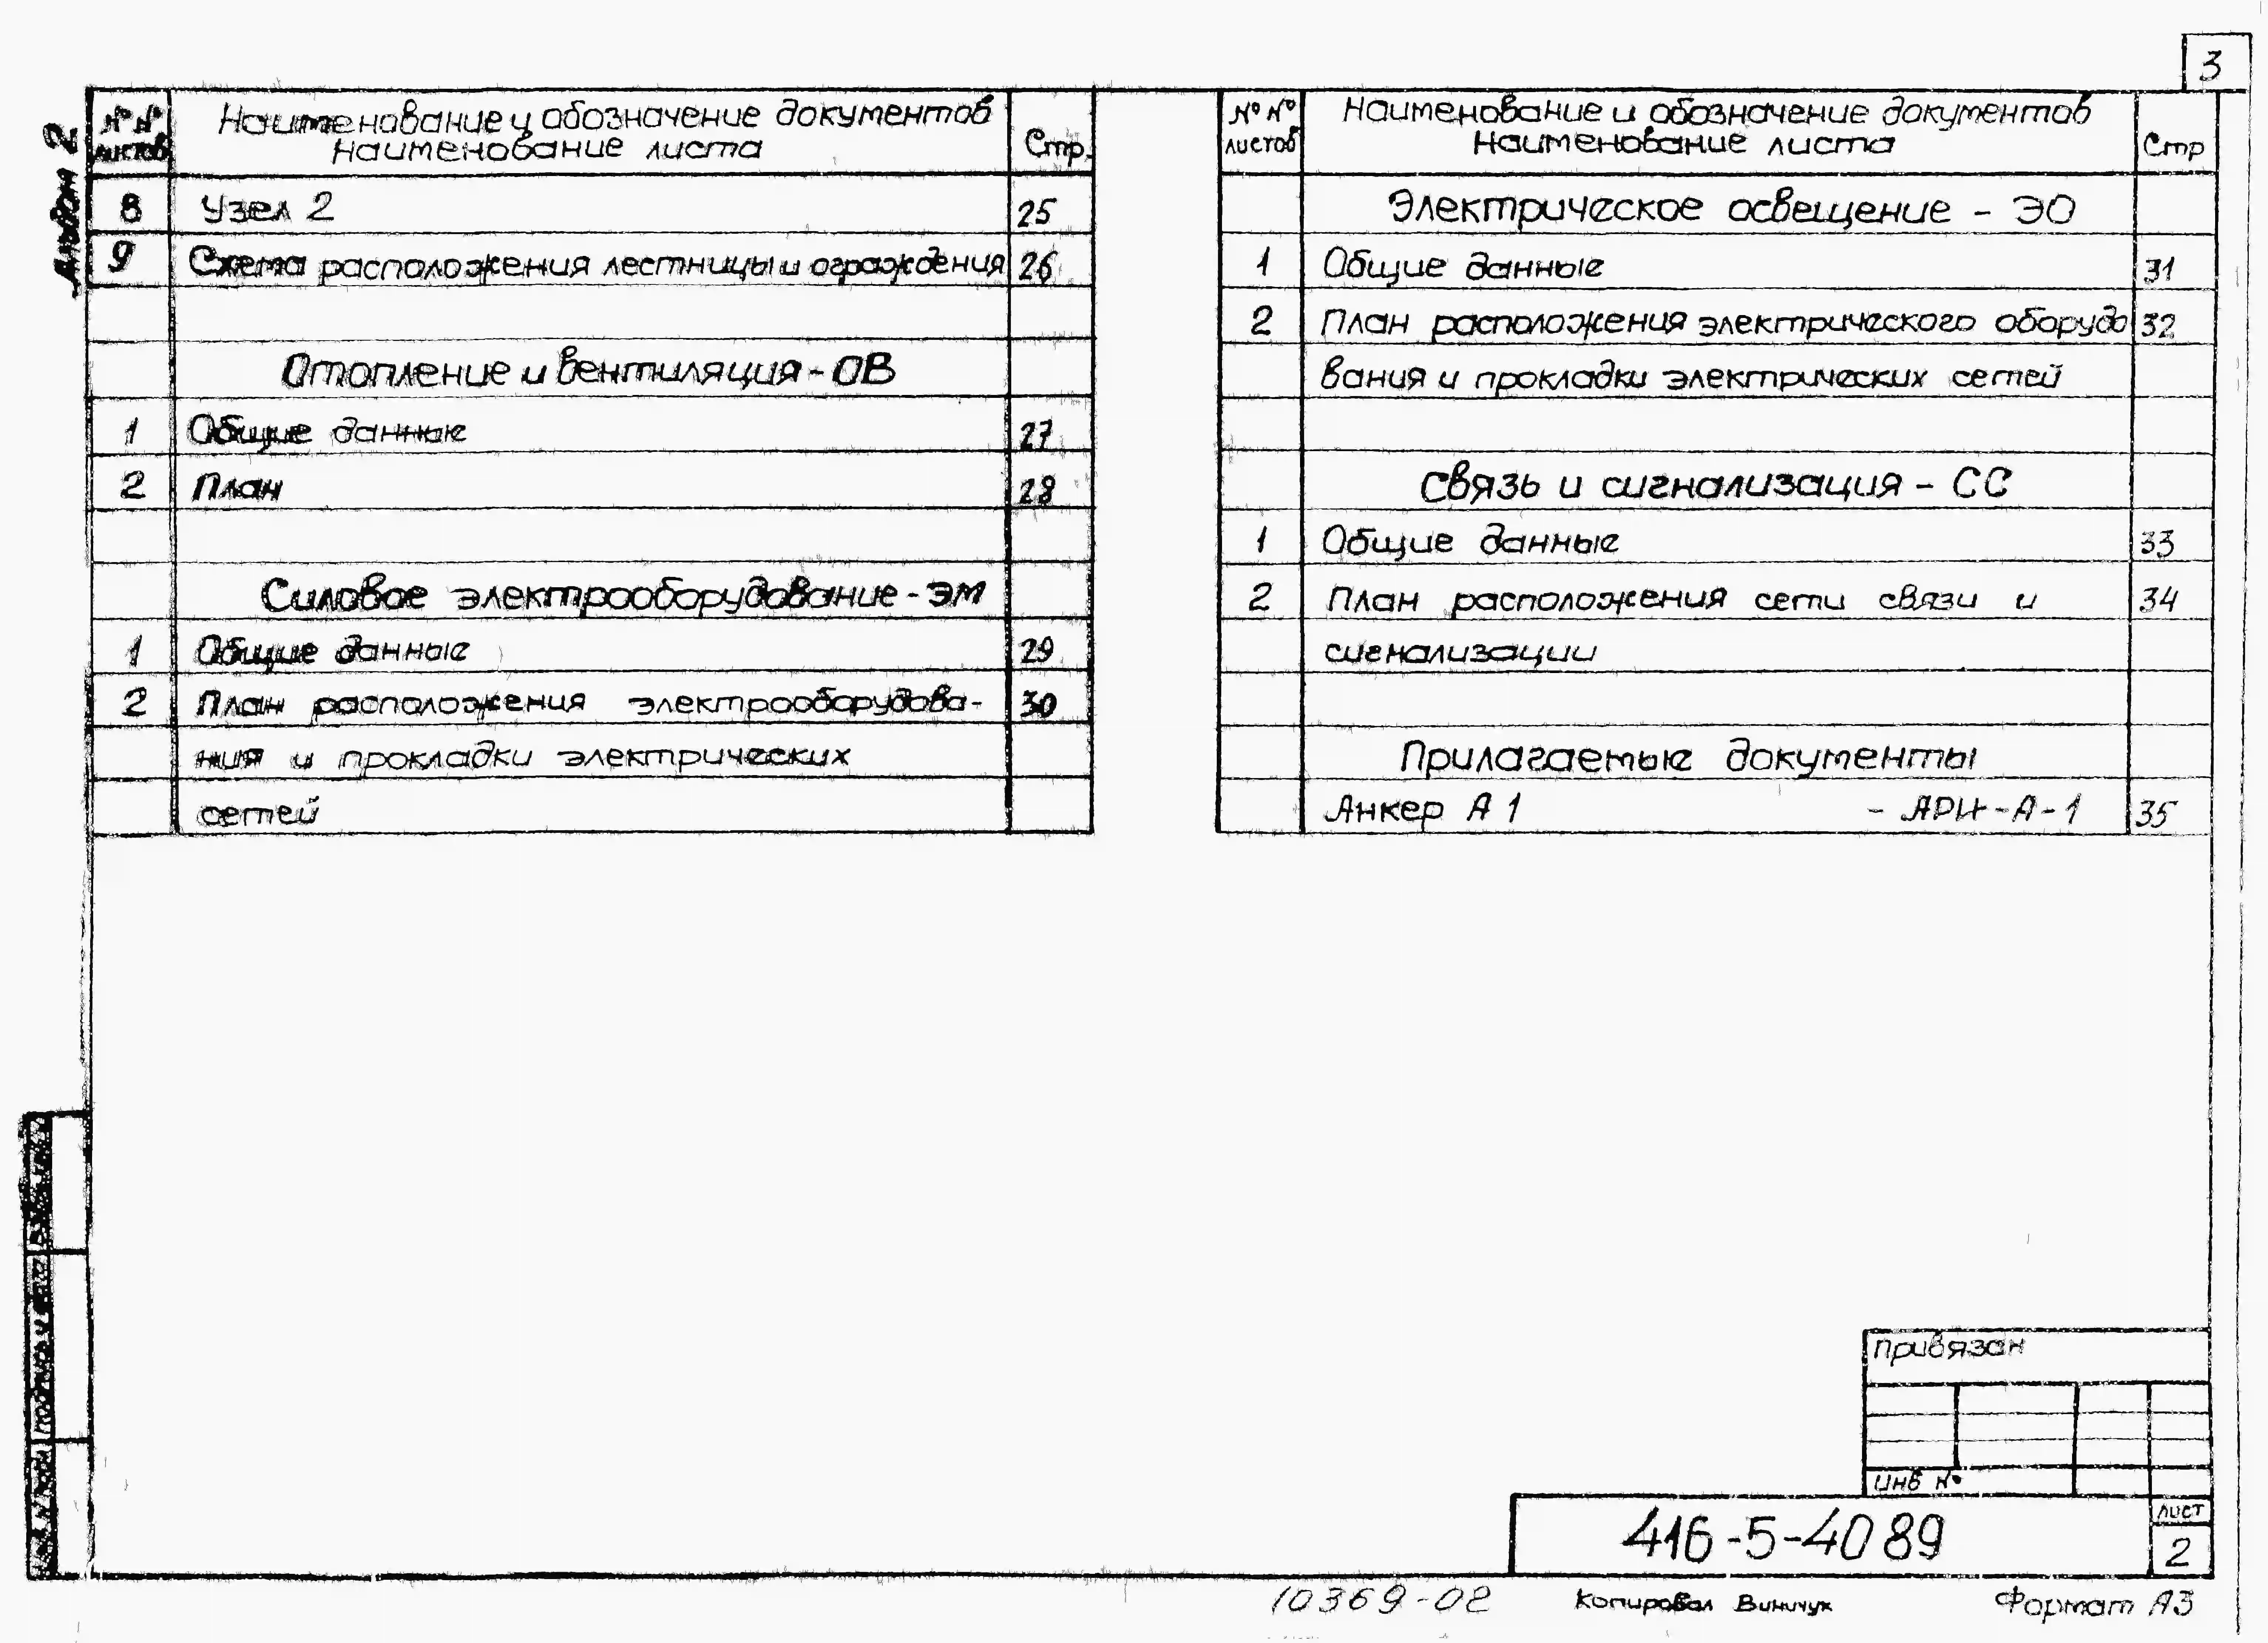 3
Альбом 2
№№ листов
Наименование и обозначение документов
Наименование листа
Стр.
8 Узел 2 25
9 Схема расположения лестницы и ограждения 26
Отопление и вентиляция - ОВ
1 Общие данные 27
2 План 28
Силовое электрооборудование - ЭМ
1 Общие данные 29
2 План расположения электрооборудова- 30
ния и прокладки электрических
сетей
№№ листов
Наименование и обозначение документов
Наименование листа
Стр
Электрическое освещение - ЭО
1 Общие данные 31
2 План расположения электрического оборудо 32
вания и прокладки электрических сетей
Связь и сигнализация - СС
1 Общие данные 33
2 План расположения сети связи и 34
сигнализации
Прилагаемые документы
Анкер А1 - АРИ-А-1 35
Привязан
Инв №
416-5-40 89
лист
2
10369-02
Копировал Виничук
Формат А3